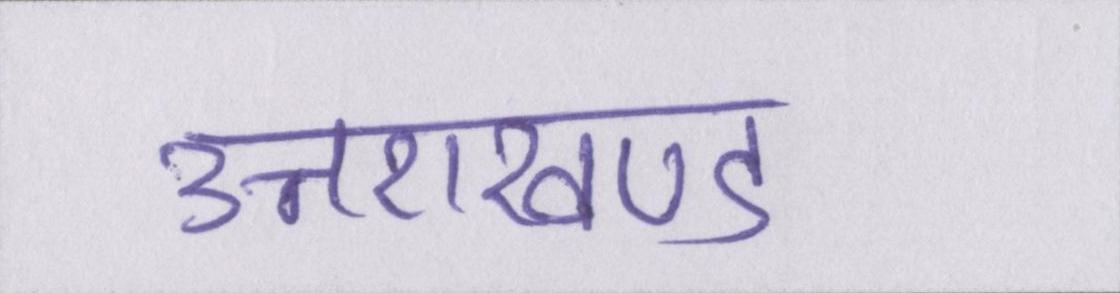 उत्तराखण्ड